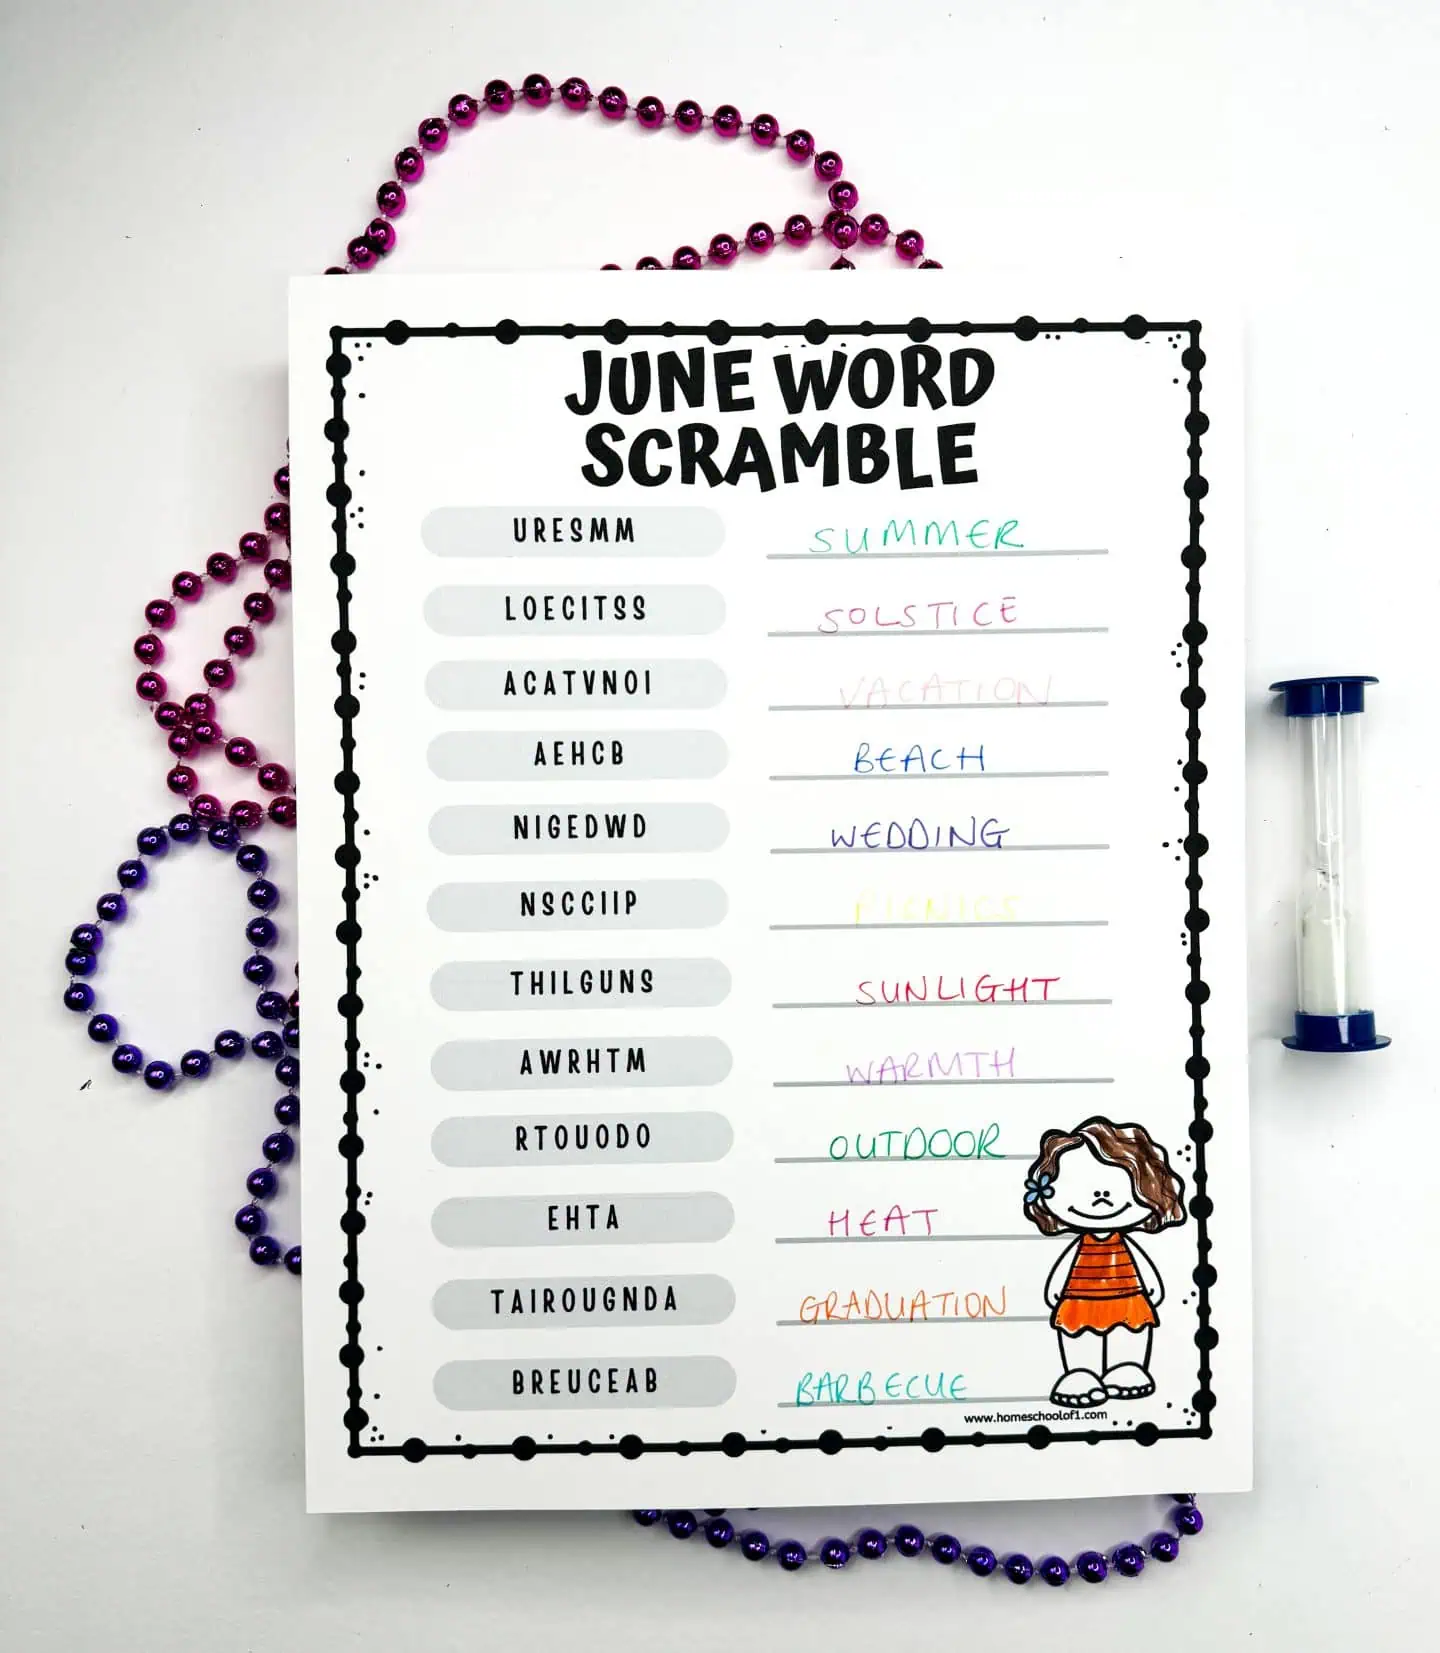 JUNE WORD
SCRAMBLE
URESMM SUMMER
LOECITSS SOLSTICE
ACATVNOI VACATION
AEHCB BEACH
NIGEDWD WEDDING
NSCCIIP PICNICS
THILGUNS SUNLIGHT
AWRHTM WARMTH
RTOUODO OUTDOOR
EHTA HEAT
TAIROUGNDA GRADUATION
BREUCEAB BARBECUE
www.homeschoolof1.com